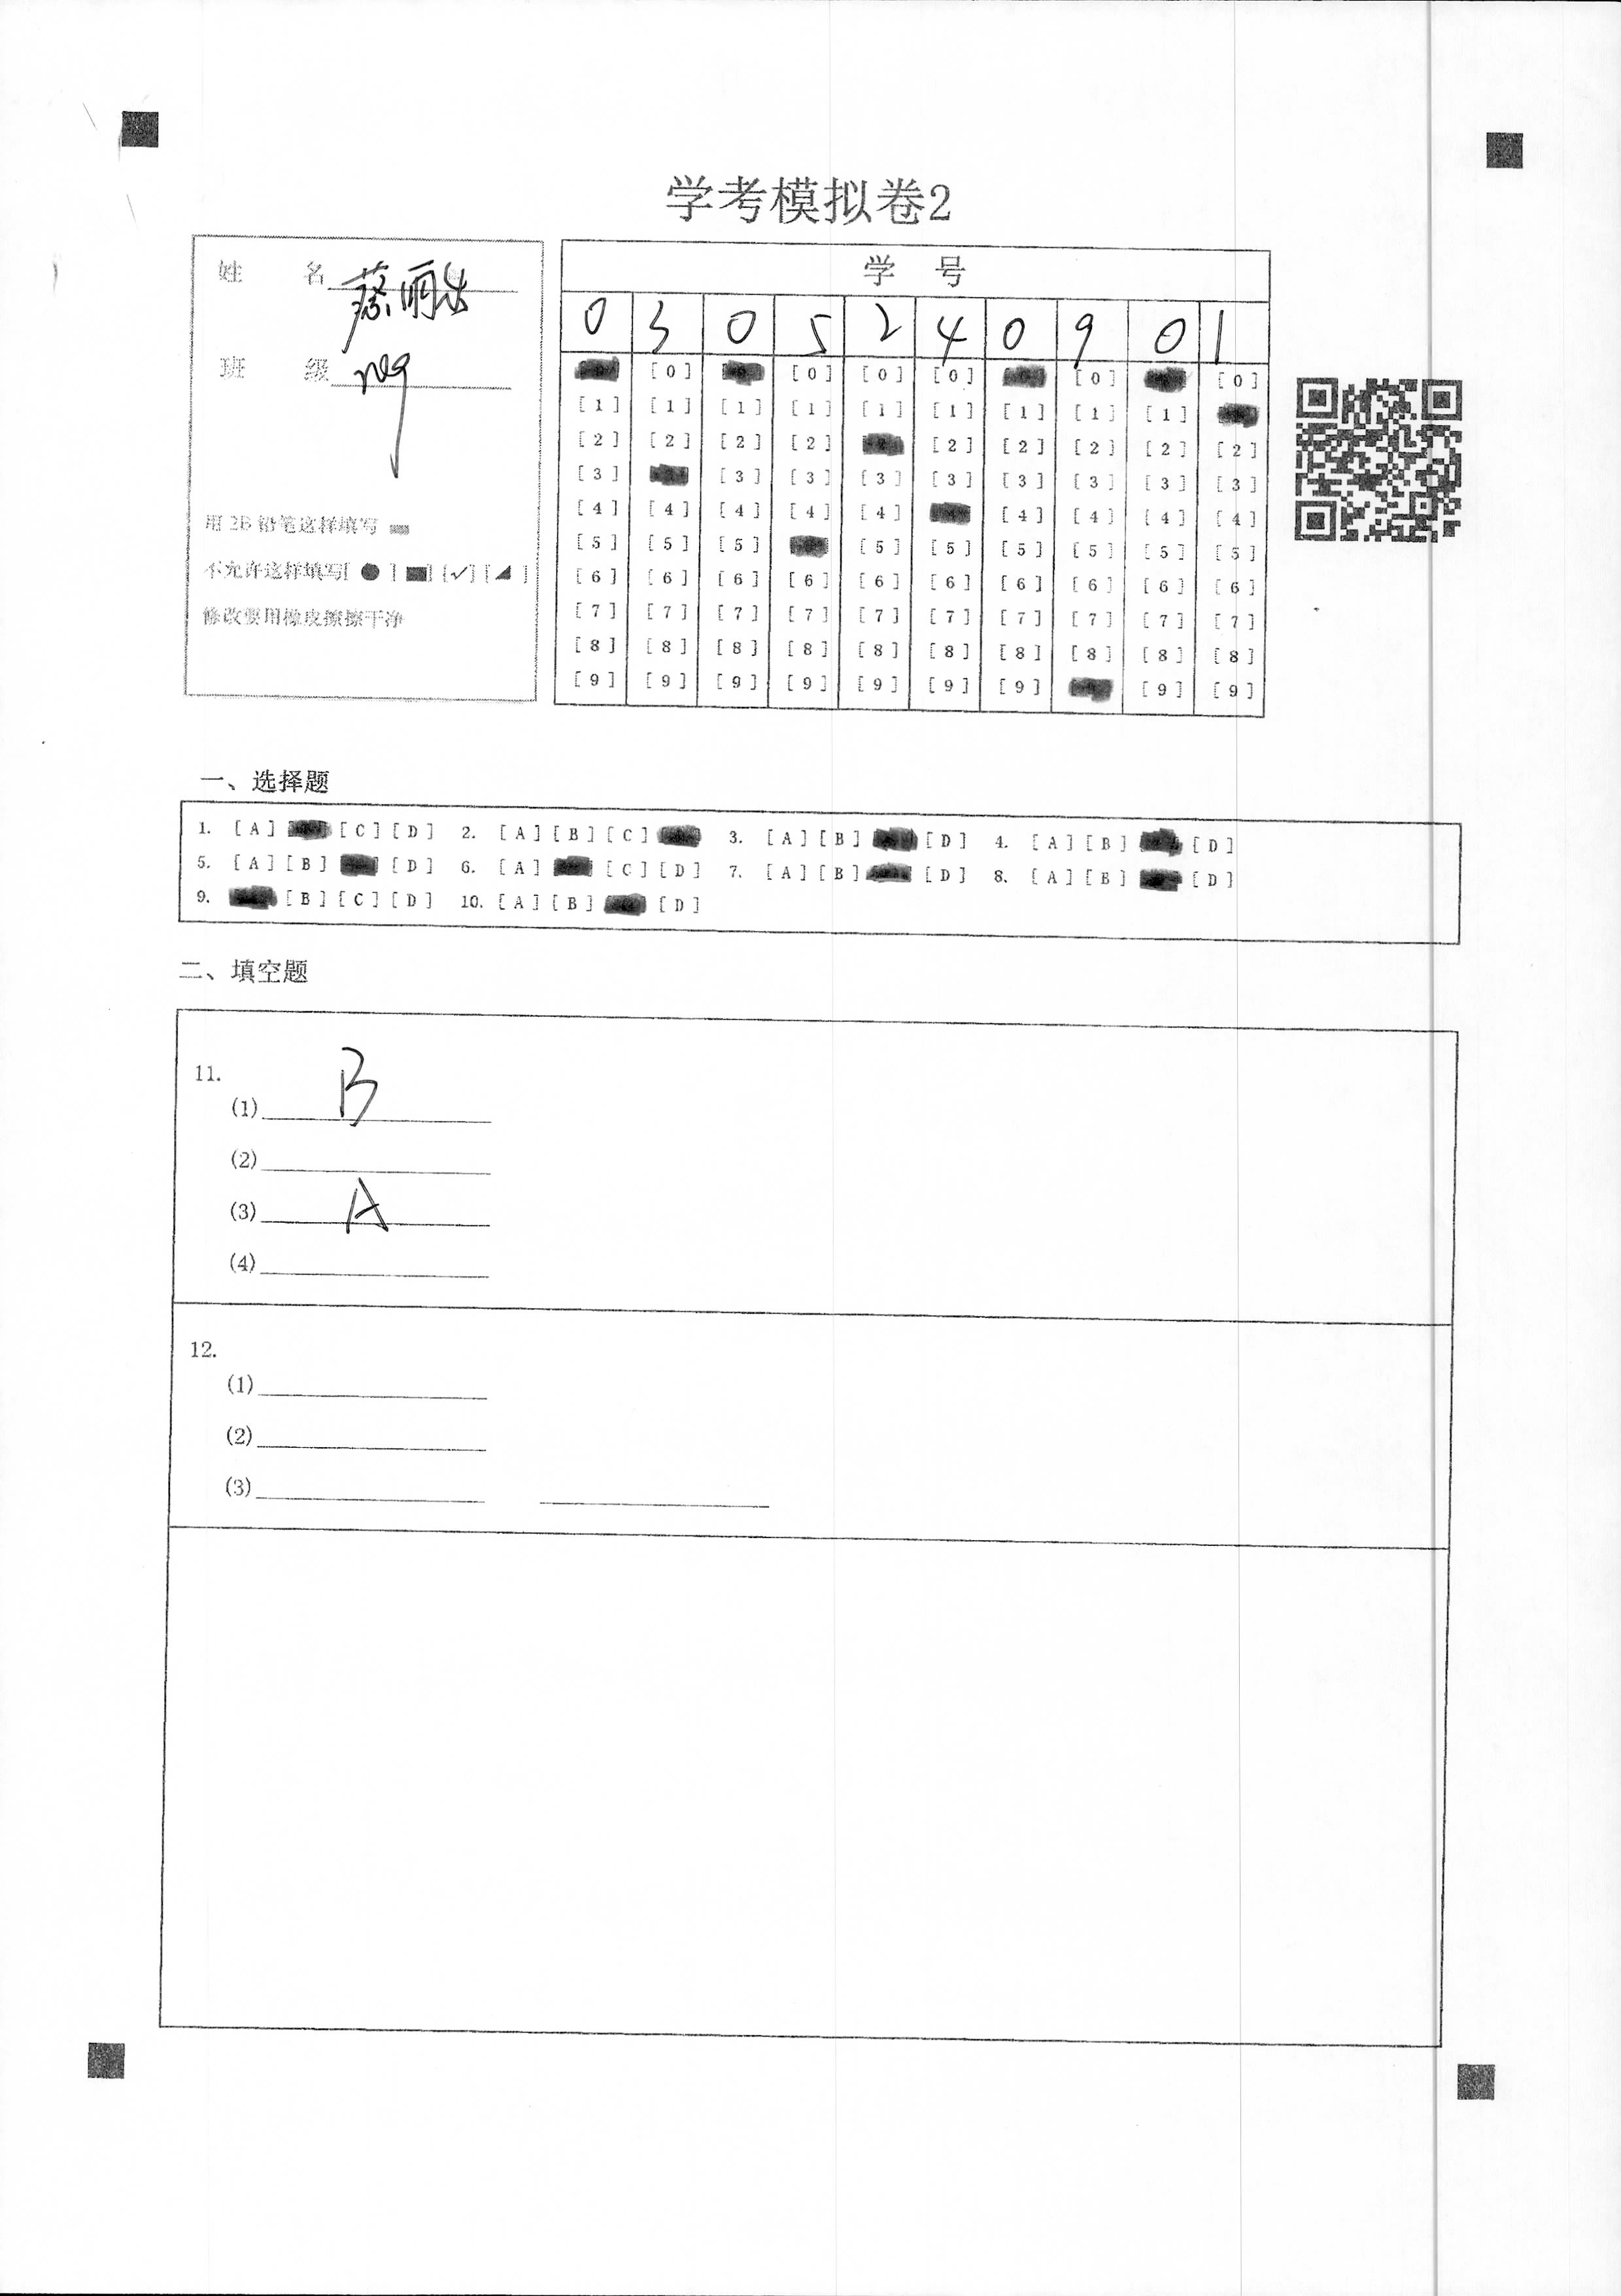 学考模拟卷2
姓 名 蔡丽
班 级
用 2B 铅笔这样填写
不允许这样填写[ ● ] [■] [✓] [◢ ]
修改要用橡皮擦擦干净
学 号
0 3 0 5 2 4 0 9 0 1
[0] [0] [0] [0] [0] [0]
[1] [1] [1] [1] [1] [1] [1] [1] [1]
[2] [2] [2] [2] [2] [2] [2] [2] [2]
[3] [3] [3] [3] [3] [3] [3] [3] [3]
[4] [4] [4] [4] [4] [4] [4] [4] [4]
[5] [5] [5] [5] [5] [5] [5] [5] [5]
[6] [6] [6] [6] [6] [6] [6] [6] [6] [6]
[7] [7] [7] [7] [7] [7] [7] [7] [7] [7]
[8] [8] [8] [8] [8] [8] [8] [8] [8] [8]
[9] [9] [9] [9] [9] [9] [9] [9] [9]
一、选择题
1. [A] [C] [D] 2. [A] [B] [C] 3. [A] [B] [D] 4. [A] [B] [D]
5. [A] [B] [D] 6. [A] [C] [D] 7. [A] [B] [D] 8. [A] [B] [D]
9. [B] [C] [D] 10. [A] [B] [D]
二、填空题
11.
(1) B
(2)
(3) A
(4)
12.
(1)
(2)
(3)